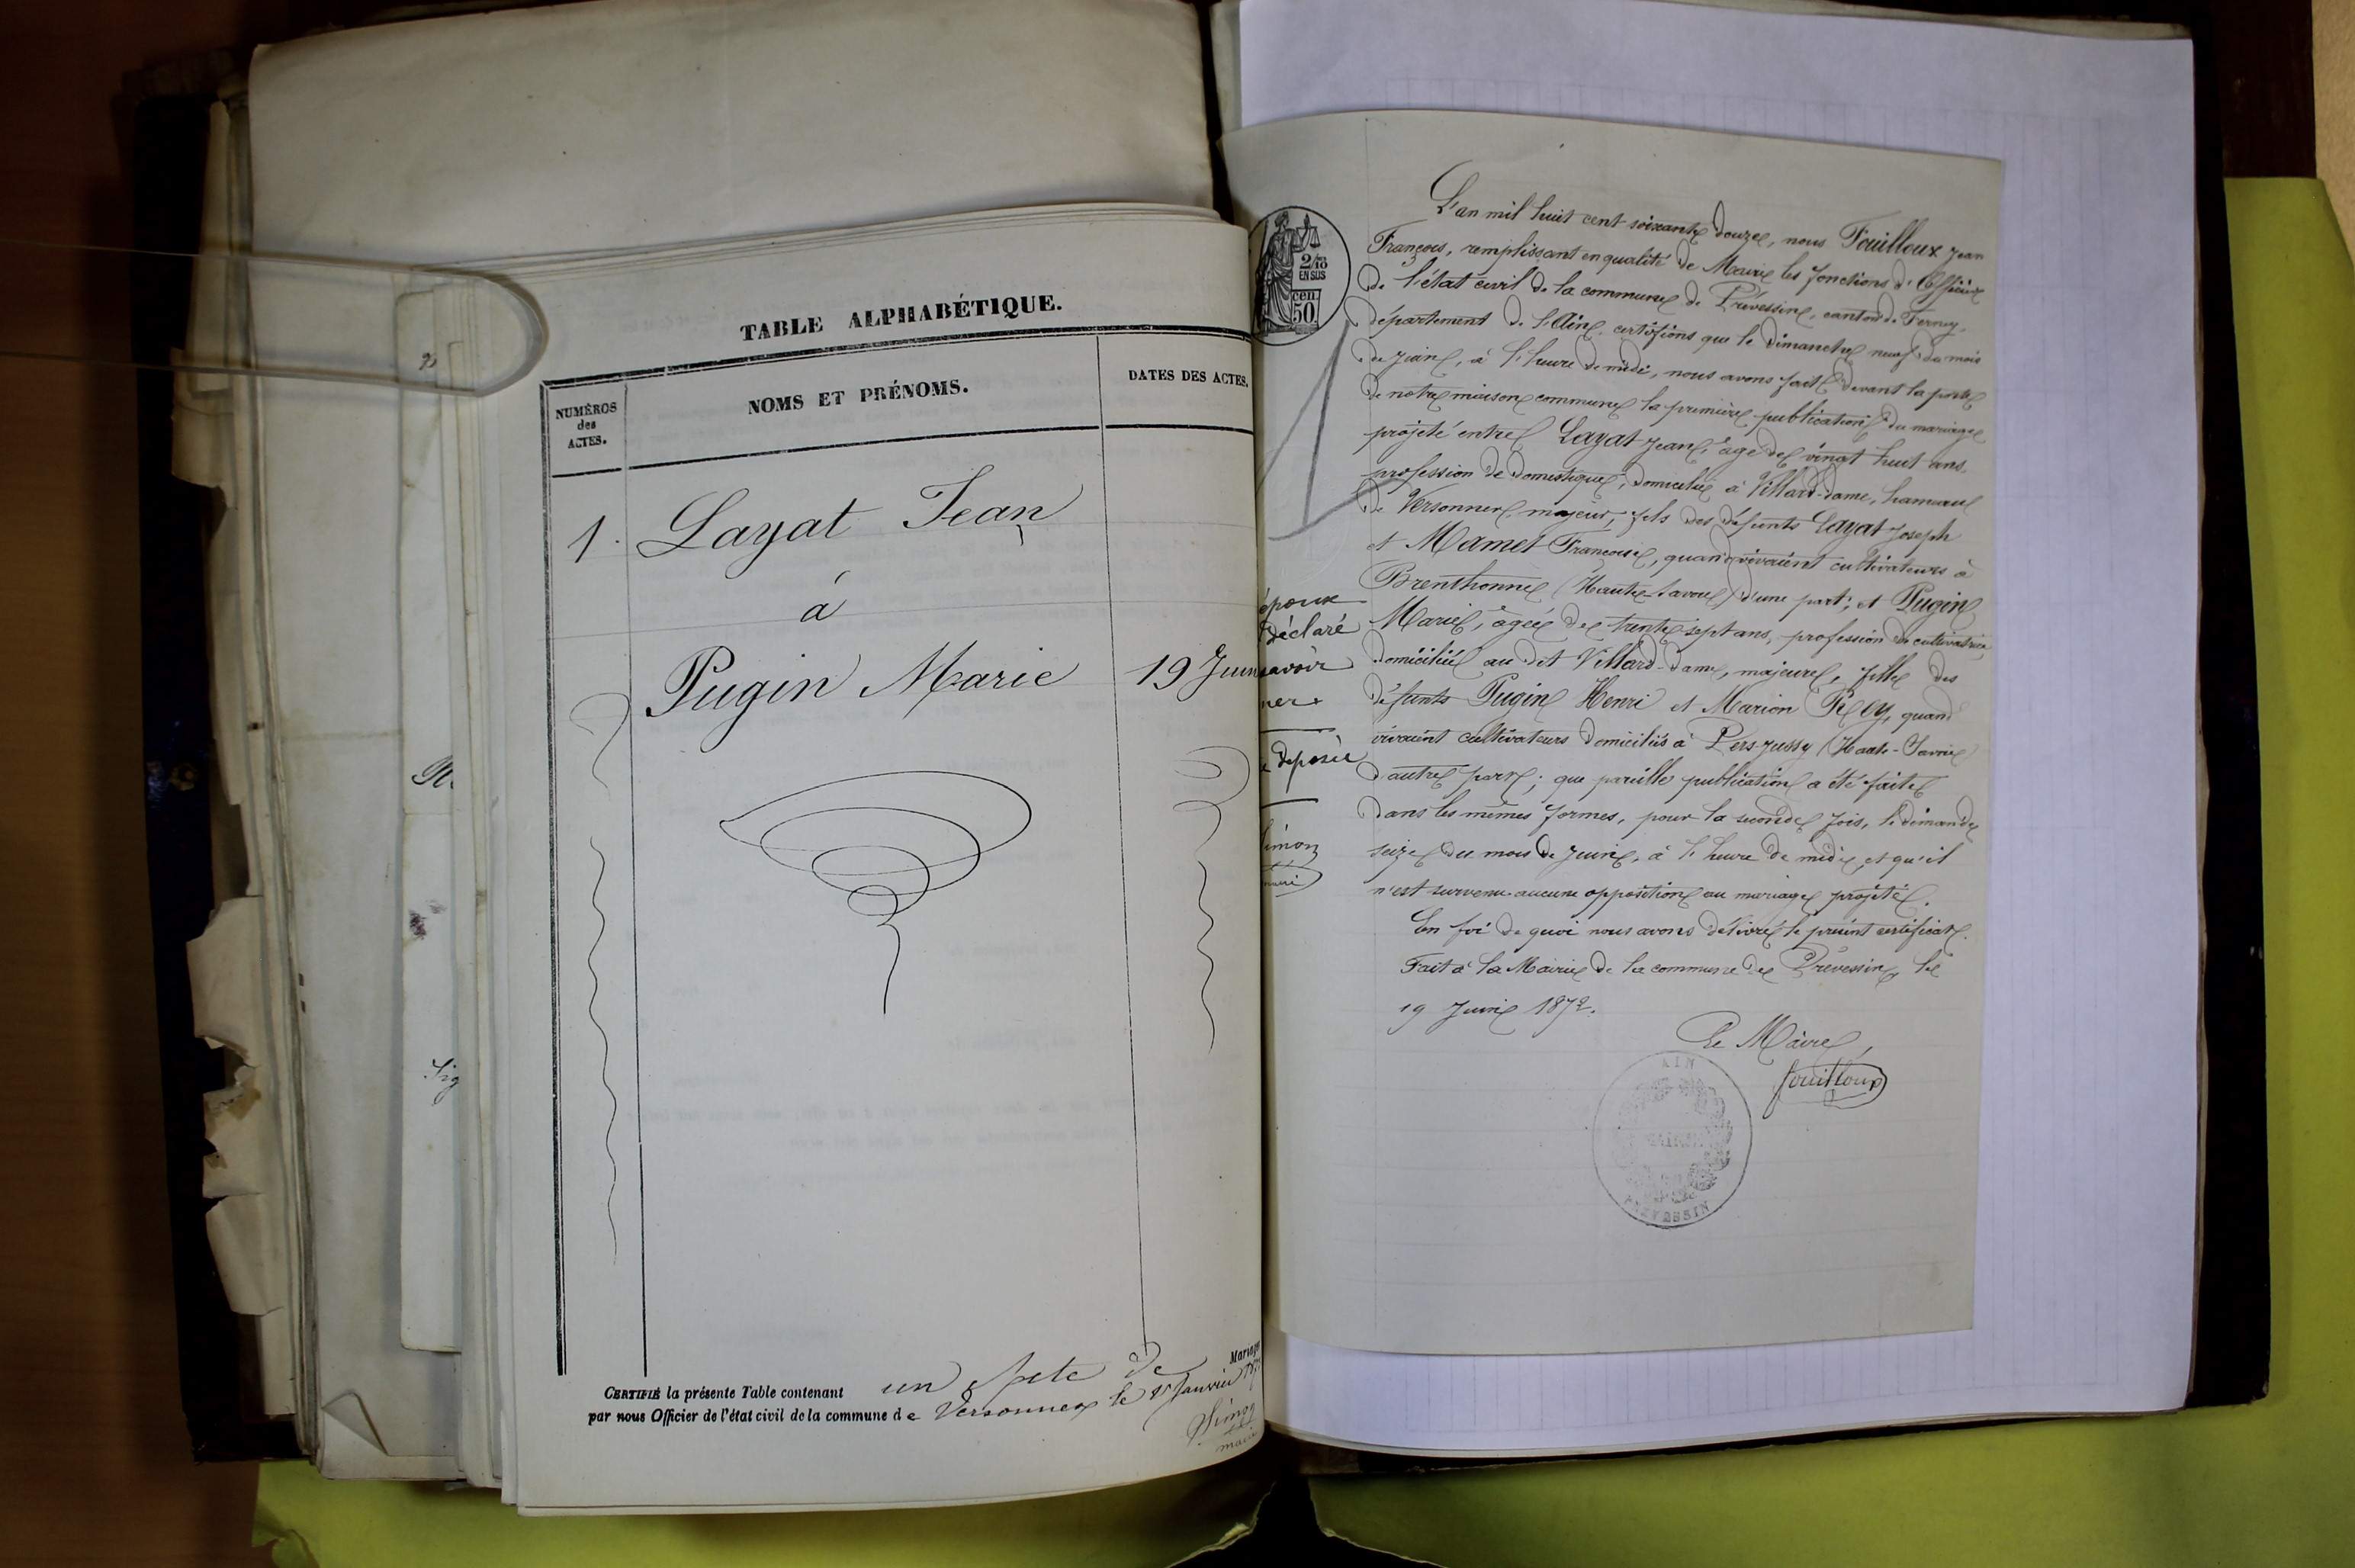 TABLE ALPHABÉTIQUE.
NUMÉROS
des
ACTES.
NOMS ET PRÉNOMS.
DATES DES ACTES.
1. Layat Jean
à
Pugin Marie 19 Juin
CERTIFIÉ la présente Table contenant un Acte de Mariage
par nous Officier de l'état civil de la commune de Versonnex le 1er Janvier
Simon
maire
époux
déclaré
savoir
déposée
Simon
2/10
EN SUS
cen.
50.
L'an mil huit cent soixante douze, nous Fouilloux Jean
François, remplissant en qualité de Maire les fonctions d'Officier
de l'état civil de la commune de Prévessin, canton de Ferney,
département de l'Ain, certifions que le dimanche neuf du mois
de juin, à l'heure de midi, nous avons fait devant la porte
de notre maison commune la première publication du mariage
projeté entre Layat Jean, âgé de vingt huit ans,
profession de domestique, domicilié à Villard-dame, hameau
de Versonnex, majeur, fils des défunts Layat Joseph
et Mamet Françoise, quand vivaient cultivateurs à
Brenthonne (Haute-Savoie) d'une part; et Pugin
Marie, âgée de trente sept ans, profession de cultivatrice,
domiciliée au dit Villard-Dame, majeure, fille des
défunts Pugin Henri et Marion Rey, quand
vivaient cultivateurs domiciliés à Pers-Jussy (Haute-Savoie)
d'autre part; que pareille publication a été faite
dans les mêmes formes, pour la seconde fois, le dimanche
seize du mois de juin, à l'heure de midi, et qu'il
n'est survenu aucune opposition au mariage projeté.
En foi de quoi nous avons délivré le présent certificat.
Fait à la Mairie de la commune de Prévessin, le
19 Juin 1872.
Le Maire,
fouilloux
AIN
MAIRIE
PREVESSIN